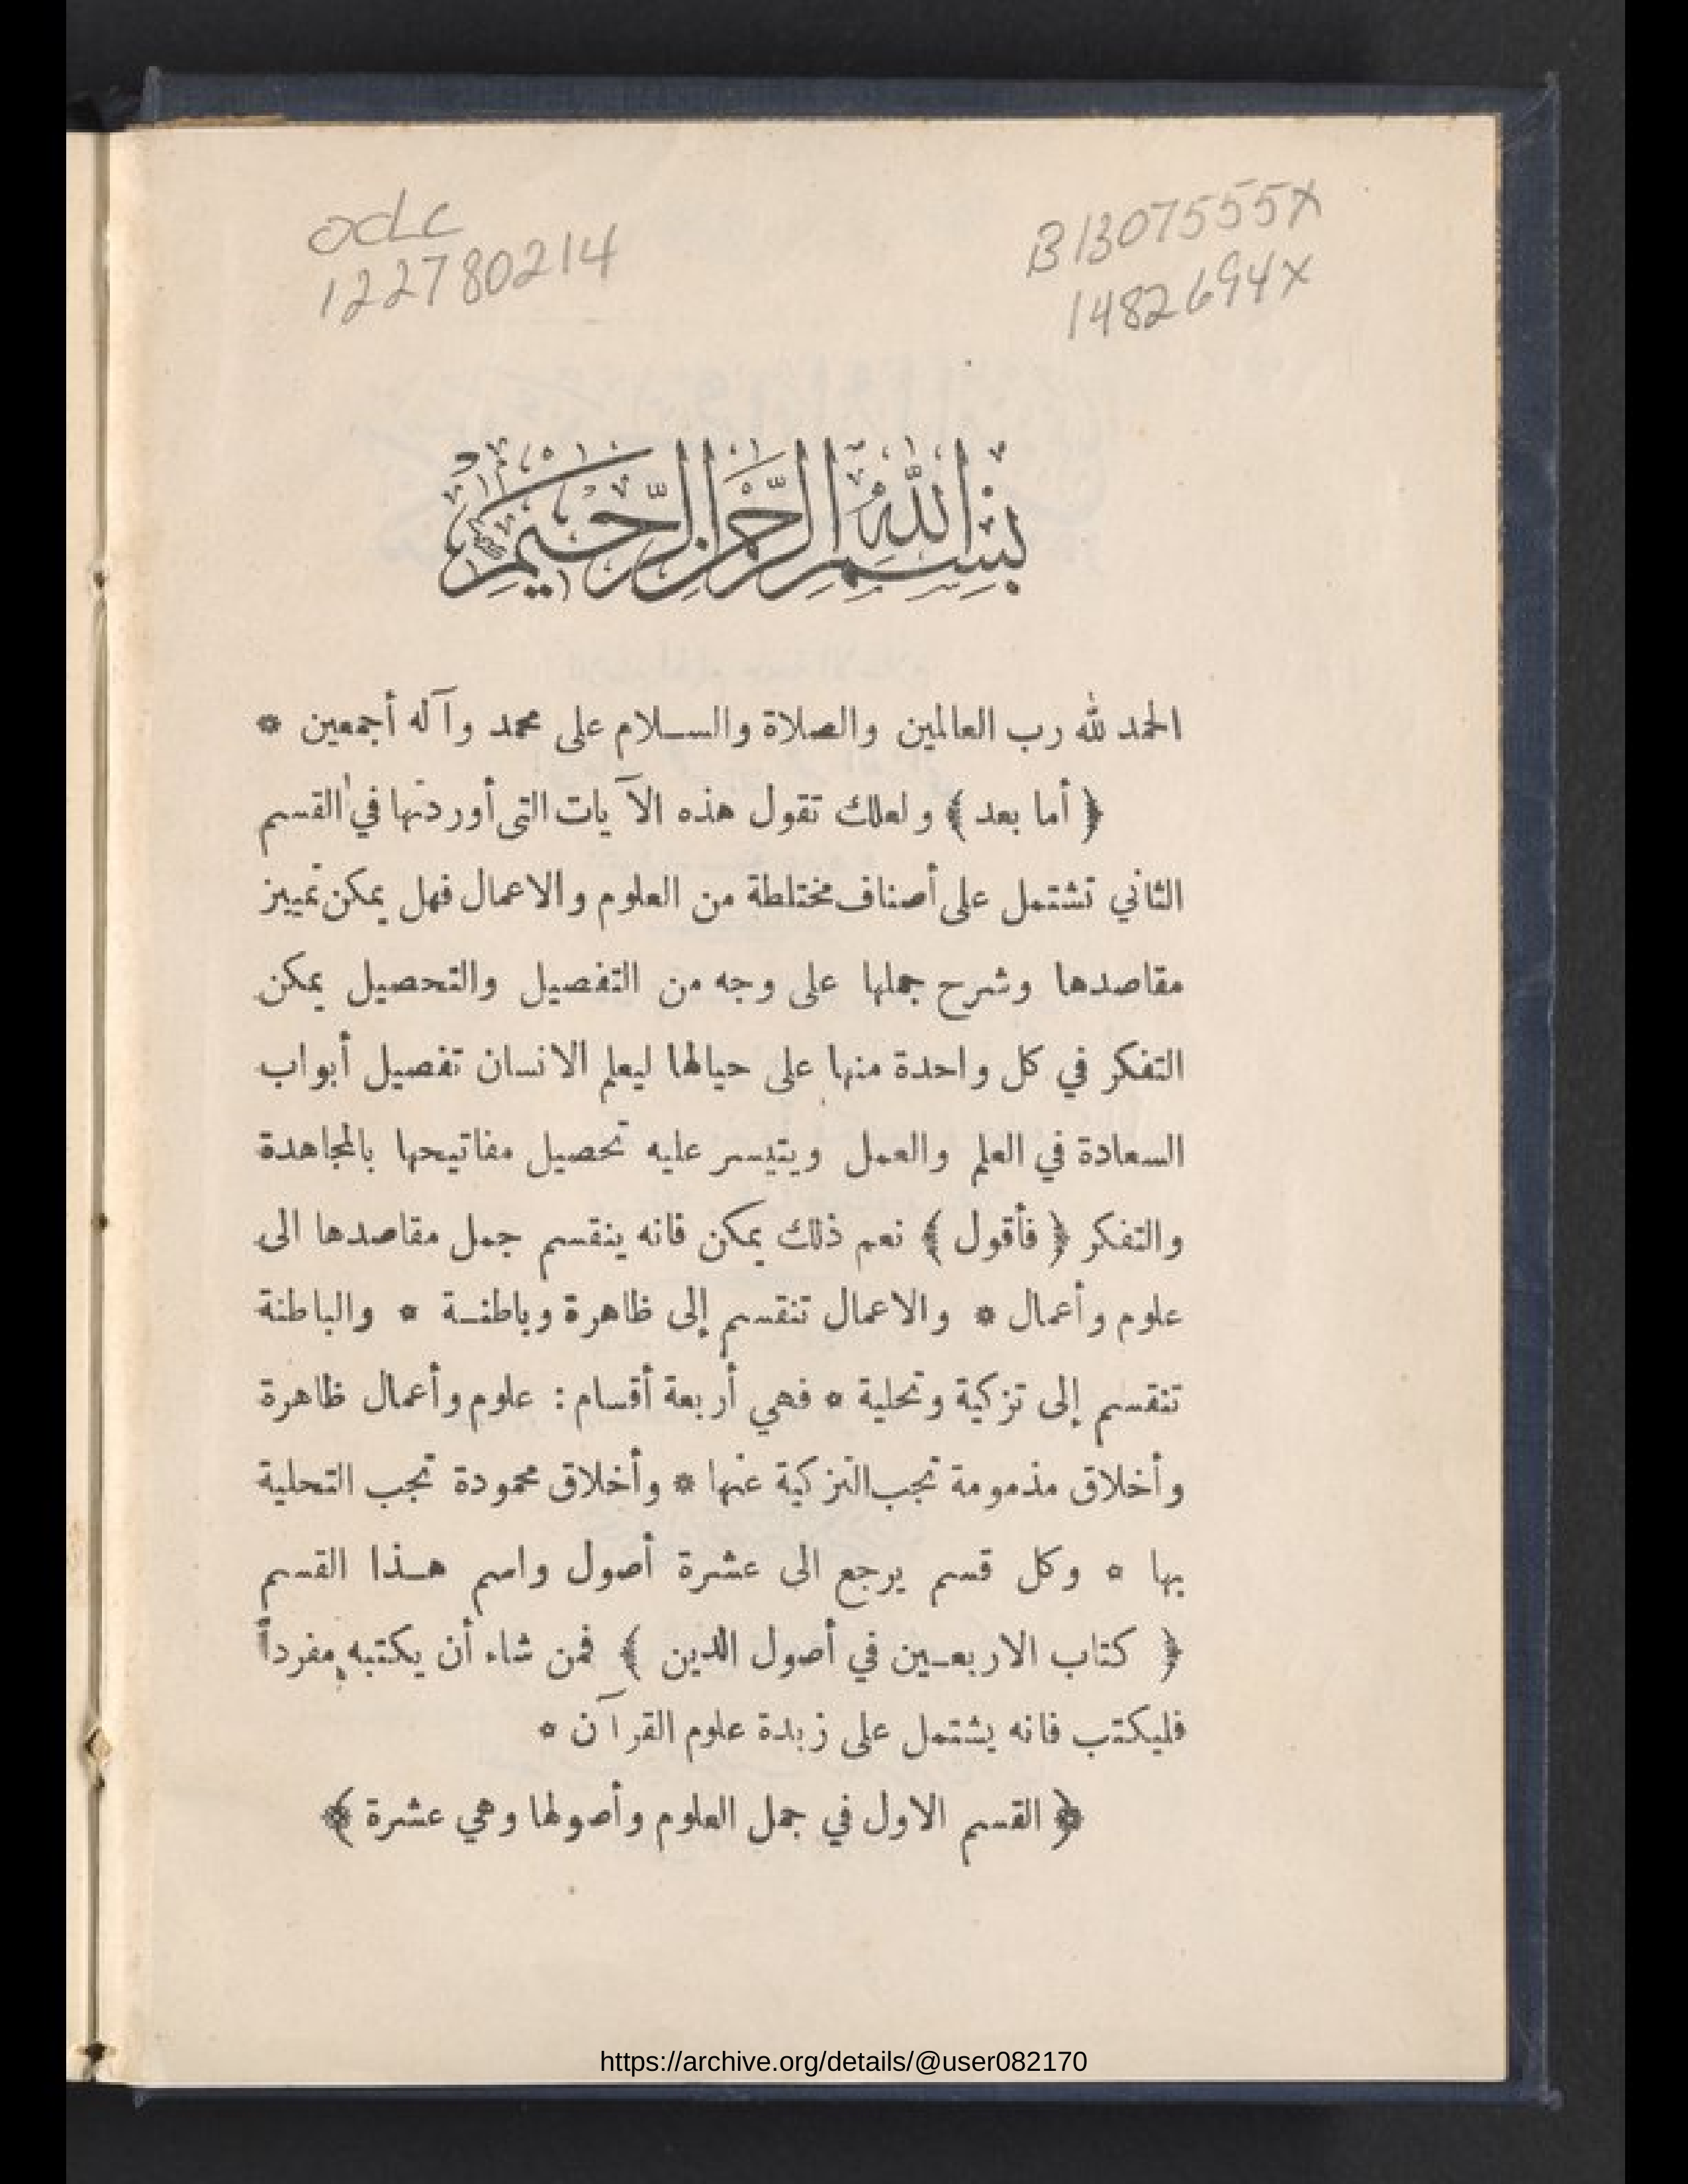 oclc
122780214
B1307555X
1482694x
بِسْمِ اللَّهِ الرَّحْمَنِ الرَّحِيمِ
الحمد لله رب العالمين والصلاة والسلام على محمد وآله أجمعين *
﴿ أما بعد ﴾ ولعلك تقول هذه الآيات التى أوردتها في القسم
الثاني تشتمل على أصناف مختلطة من العلوم والاعمال فهل يمكن تمييز
مقاصدها وشرح جملها على وجه من التفصيل والتحصيل يمكن
التفكر في كل واحدة منها على حيالها ليعلم الانسان تفصيل أبواب
السعادة في العلم والعمل ويتيسر عليه تحصيل مفاتيحها بالمجاهدة
والتفكر ﴿ فأقول ﴾ نعم ذلك يمكن فانه ينقسم جمل مقاصدها الى
علوم وأعمال * والاعمال تنقسم إلى ظاهرة وباطنة * والباطنة
تنقسم إلى تزكية وتحلية * فهي أربعة أقسام: علوم وأعمال ظاهرة
وأخلاق مذمومة تجب التزكية عنها * وأخلاق محمودة تجب التحلية
بها * وكل قسم يرجع الى عشرة أصول واسم هذا القسم
﴿ كتاب الاربعين في أصول الدين ﴾ فمن شاء أن يكتبه مفرداً
فليكتب فانه يشتمل على زبدة علوم القرآن *
﴿ القسم الاول في جمل العلوم وأصولها وهي عشرة ﴾
https://archive.org/details/@user082170